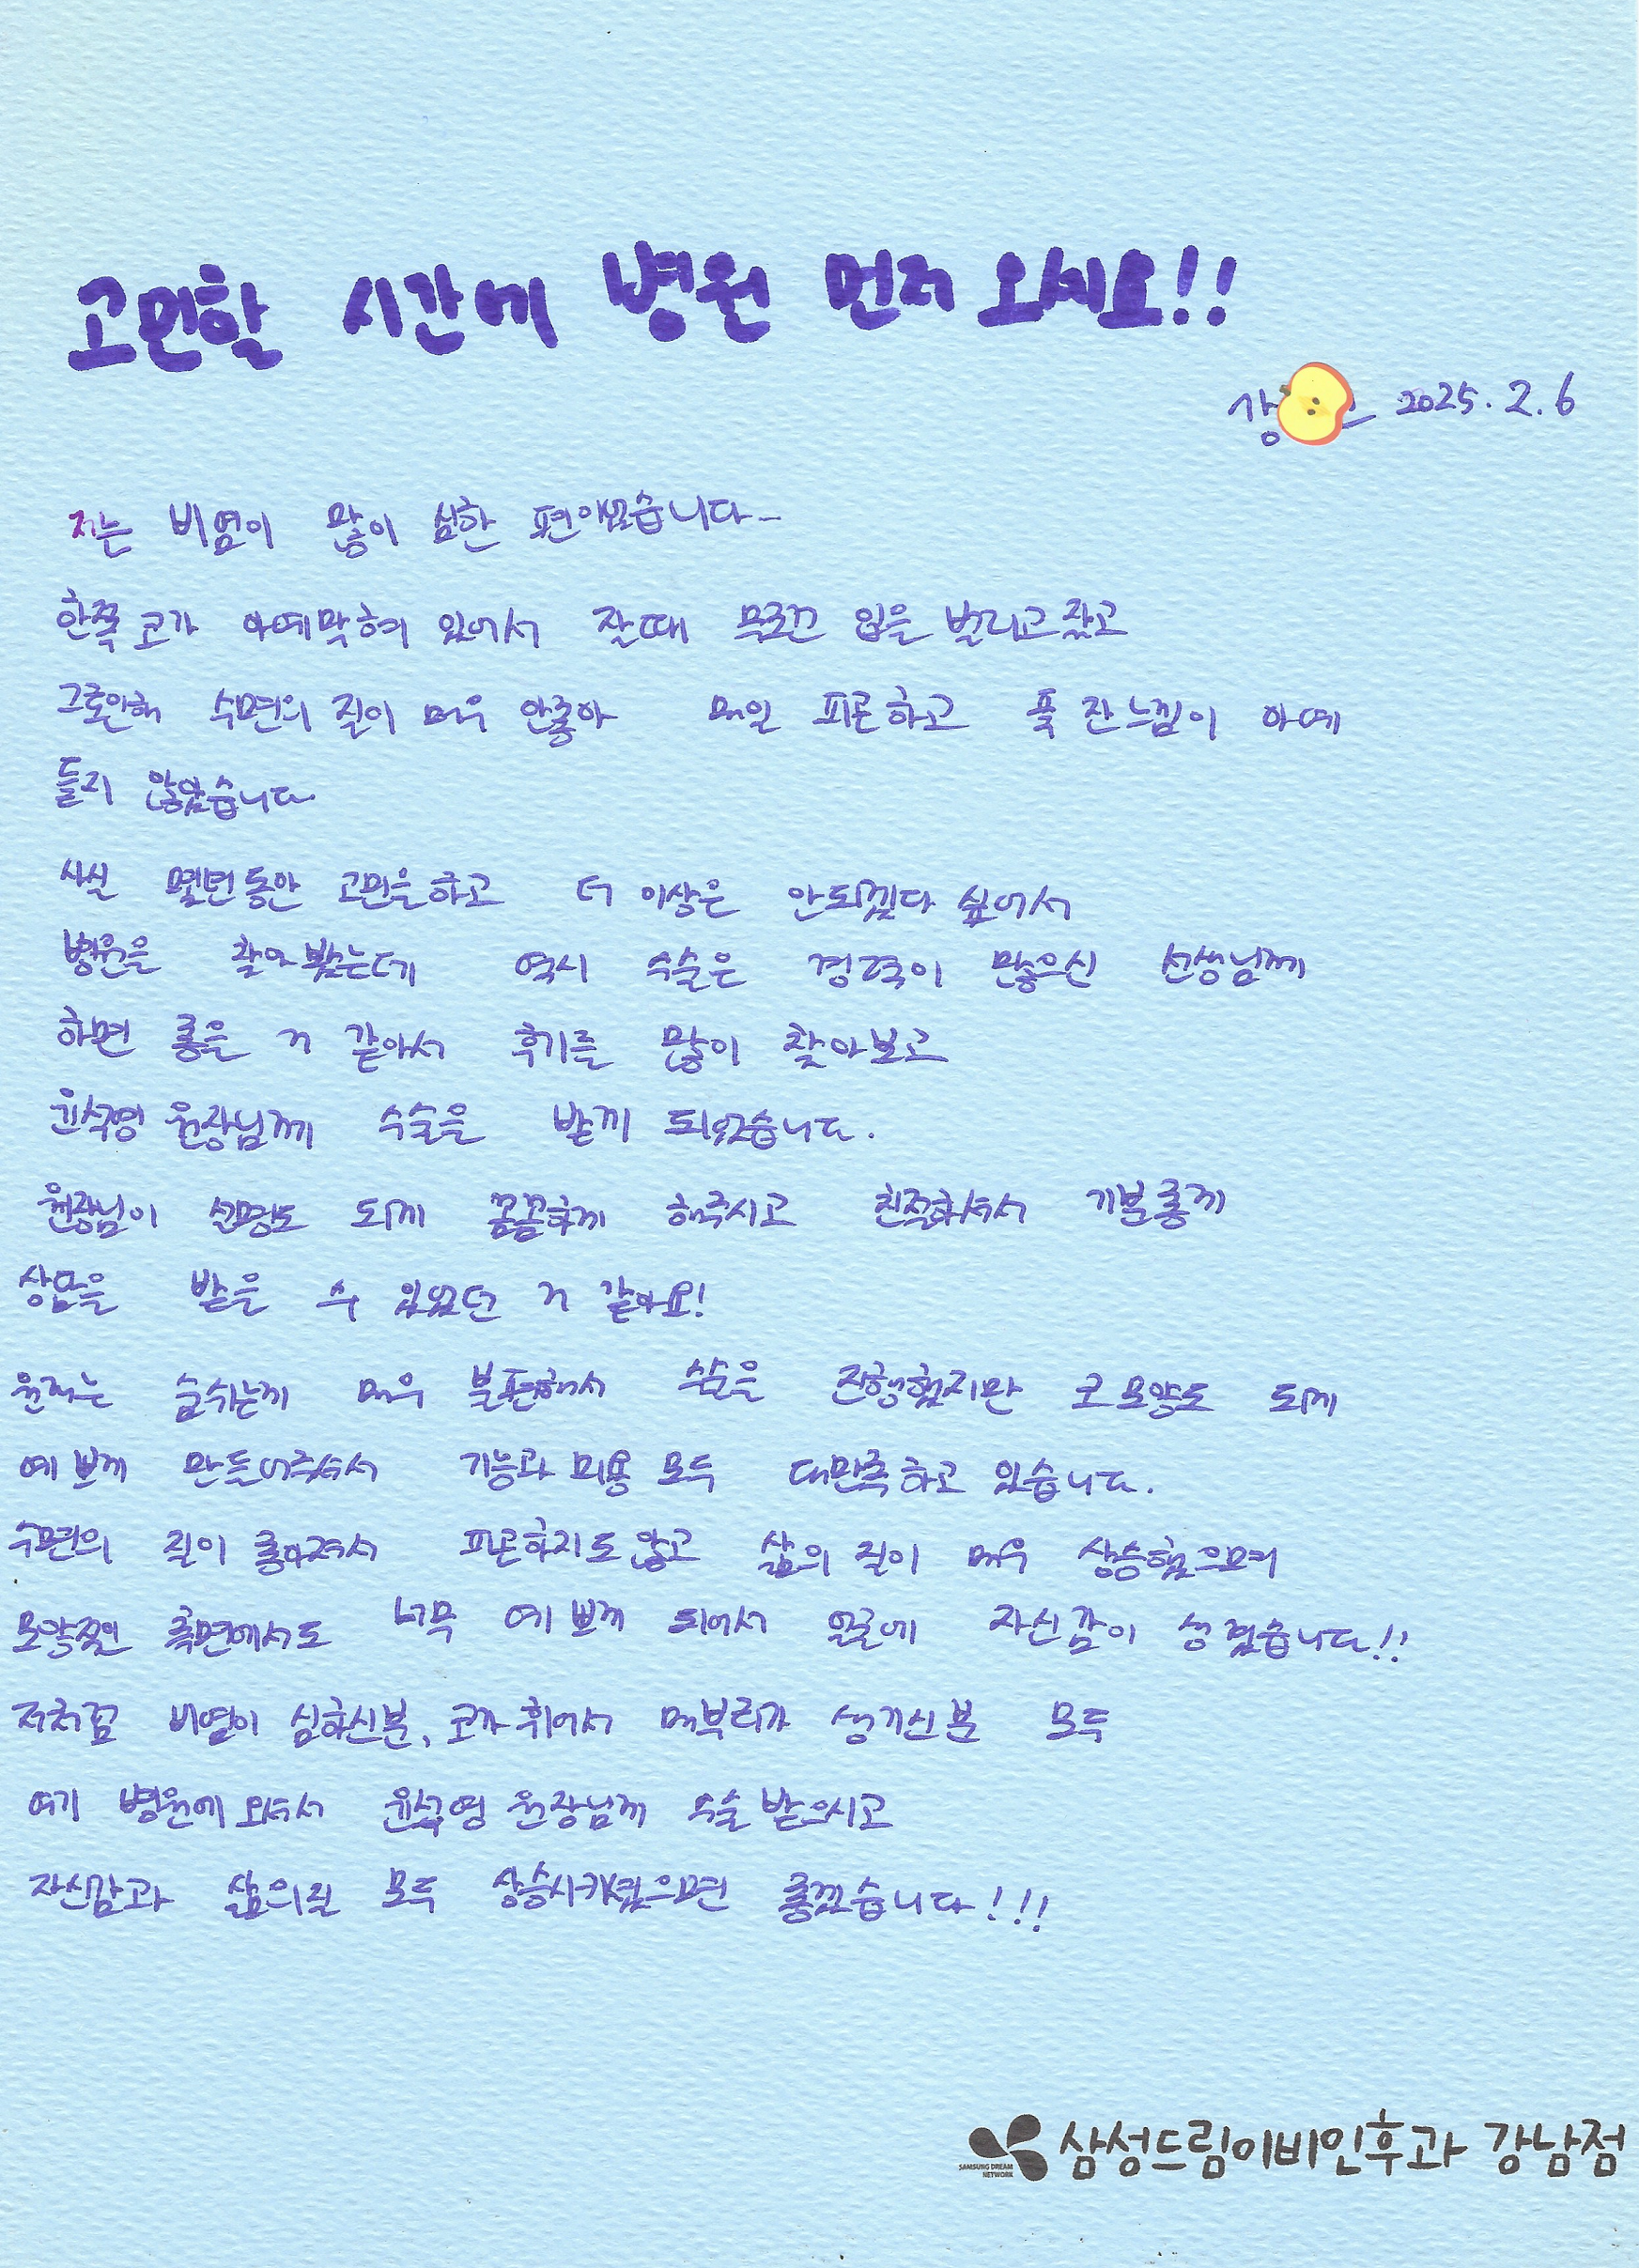 고민할 시간에 병원 먼저 오세요!!
강 2025.2.6
저는 비염이 많이 심한 편이었습니다-
한쪽 코가 아예막혀 있어서 잘때 무조건 입을 벌리고잤고
그로인해 수면의 질이 매우 안좋아 매일 피곤하고 푹 잔느낌이 아예
들지 않았습니다
사실 몇년동안 고민을하고 더 이상은 안되겠다 싶어서
병원을 찾아봤는데 역시 수술은 경력이 많으신 선생님께
하면 좋을 거 같아서 후기를 많이 찾아보고
윤석영 원장님께 수술을 받게 되었습니다.
원장님이 설명도 되게 꼼꼼하게 해주시고 친절하셔서 기분좋게
상담을 받을 수 있었던 거 같아요!
원래는 숨쉬는게 매우 불편해서 수술을 진행했지만 코모양도 되게
예쁘게 만들어주셔서 기능과 미용 모두 대만족하고 있습니다.
수면의 질이 좋아져서 피곤하지도 않고 삶의 질이 매우 상승했으며
모양적인 측면에서도 너무 예쁘게 되어서 얼굴에 자신감이 생겼습니다!!
저처럼 비염이 심하신분, 코가 휘어서 매부리가 생기신분 모두
여기 병원에 오셔서 윤석영 원장님께 수술 받으시고
자신감과 삶의질 모두 상승시키셨으면 좋겠습니다!!!
SAMSUNG DREAM
NETWORK
삼성드림이비인후과 강남점